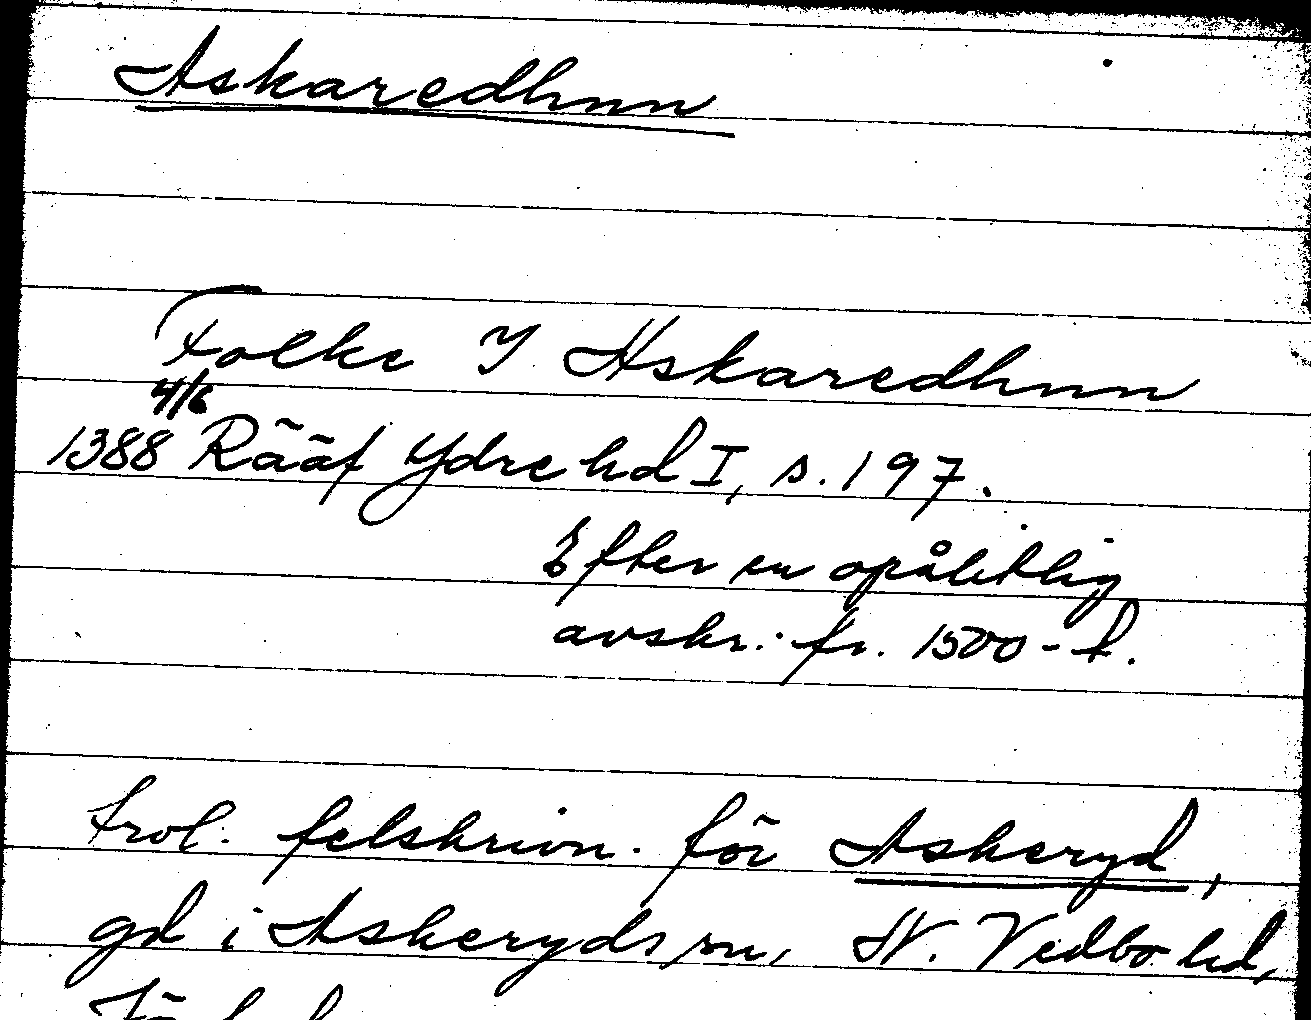 Askaredhnn
Folke J Askaredhnn
4/6
1388 Rääf Ydre hd I, s. 197.
Efter en opålitlig
avskr. fr. 1500-t.
trol. felskrivn. för Askeryd,
gd i Askeryds sn, N. Vedbo hd,